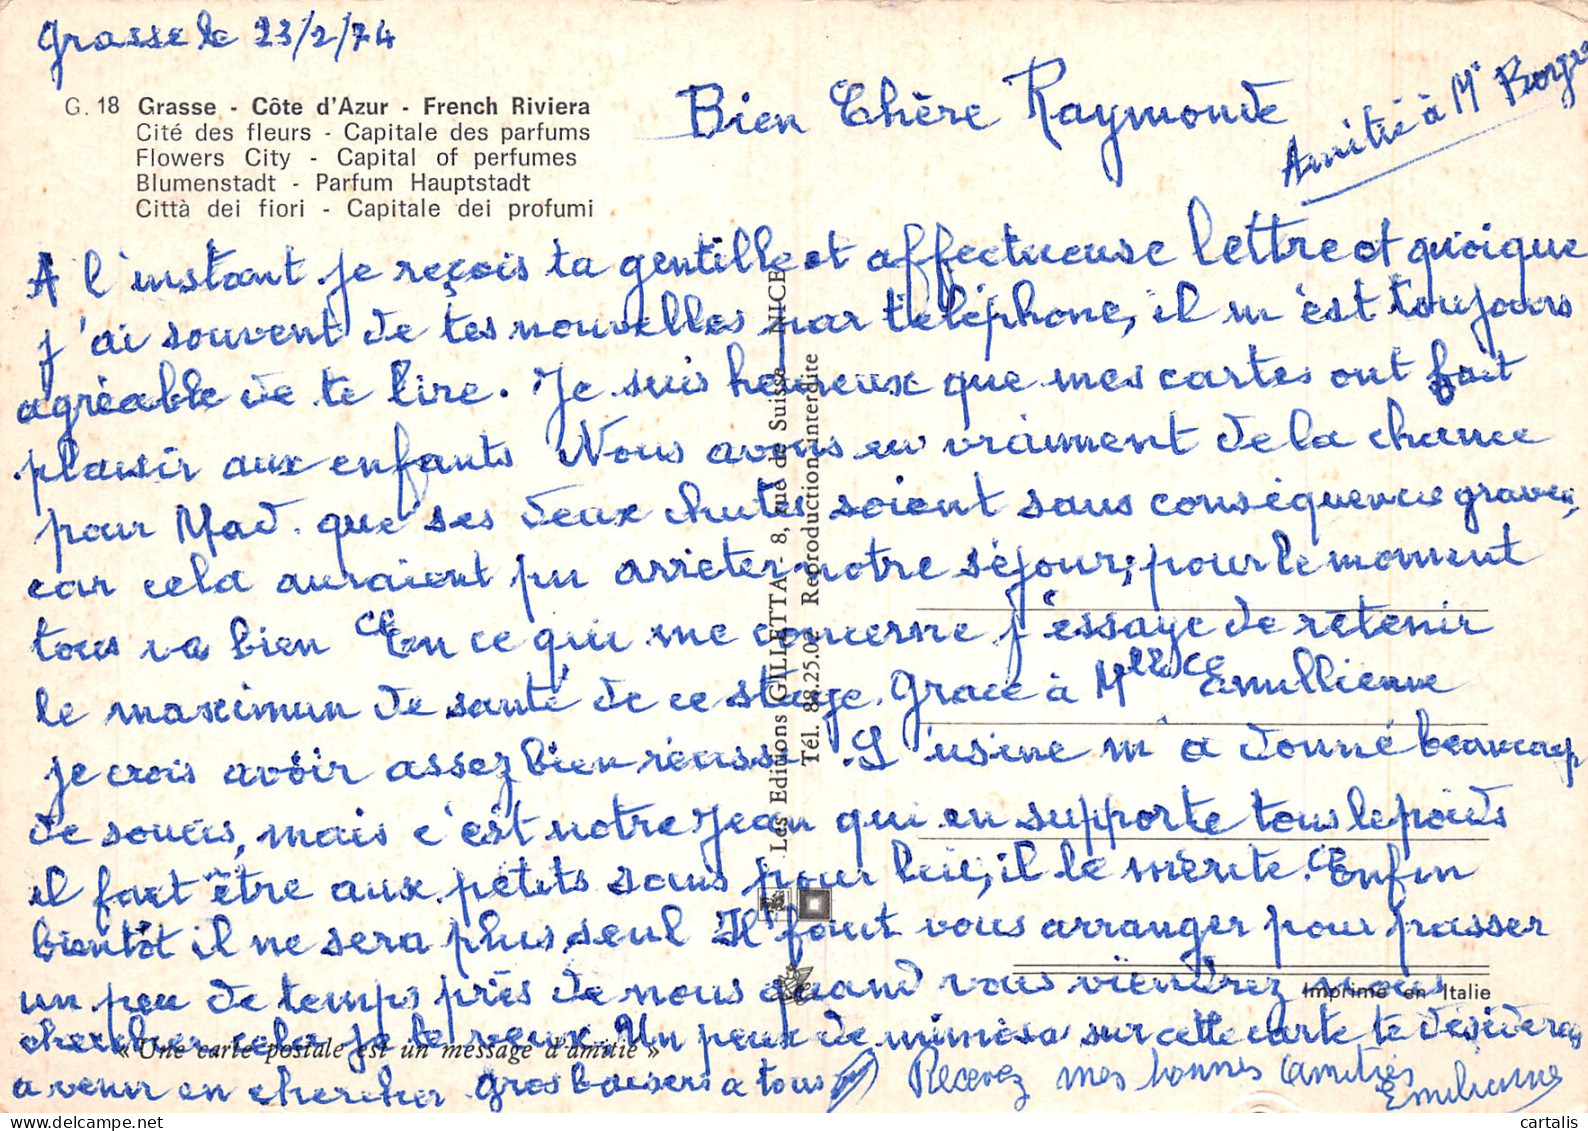 Grasse le 23/2/74
G. 18 Grasse - Côte d'Azur - French Riviera
Cité des fleurs - Capitale des parfums
Flowers City - Capital of perfumes
Blumenstadt - Parfum Hauptstadt
Città dei fiori - Capitale dei profumi
Bien Chère Raymonde
Amitié à Mr
A l'instant je reçois ta gentille et affectueuse lettre et quoique
j'ai souvent de tes nouvelles par téléphone, il m'est toujours
agréable de te lire. Je suis heureux que mes cartes ont fait
plaisir aux enfants Nous avons eu vraiment de la chance
pour Mad. que ses deux chutes soient sans conséquences graves,
car cela auraient pu arrêter notre séjour; pour le moment
tous va bien En ce qui me concerne j'éssaye de retenir
le maximun de santé de ce stage. Grace à Mlle Emillienne
je crois avoir assez bien réussi. L'usine m'a donné beaucoup
de soucis, mais c'est notre Jean qui en supporte tous le poids
il faut être aux petits soins pour lui, il le mérite. Enfin
bientôt il ne sera plus seul Il faut vous arranger pour passer
un peu de temps près de nous quand vous viendrez nous
chercher celes je le veux. Un peux de mimosa sur cette carte te désidera
a venir en chercher Gros baisers a tous
Recevez mes bonnes amitiés
Emilienne
Les Editions GILLETTA - 8, rue de Suisse - NICE
Tél. 88.25.02 Reproduction interdite
Imprimé en Italie
« Une carte postale est un message d'amitié »
cartalis